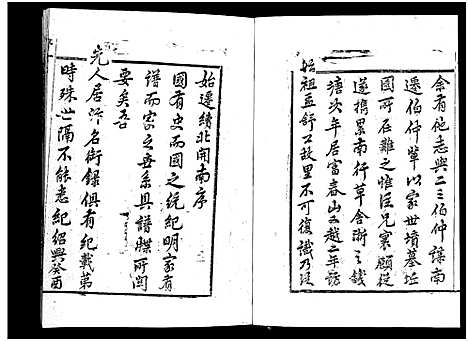 余有他志與二三伯仲謀南
遷伯仲輩以家世墳墓坵
國所在難之惟従兄寰顧従
遂携累南行草舍浙之錢
塘次年居富春山又越之年訪
始祖孟舒公故里不可復識乃従
始遷續北開南序
國有史而國之統紀明家有
譜而家之世系具譜牒所関
要矣吾
先人居汴名銜錄俱有紀載第
時殊世隔不能悉紀紹興癸酉